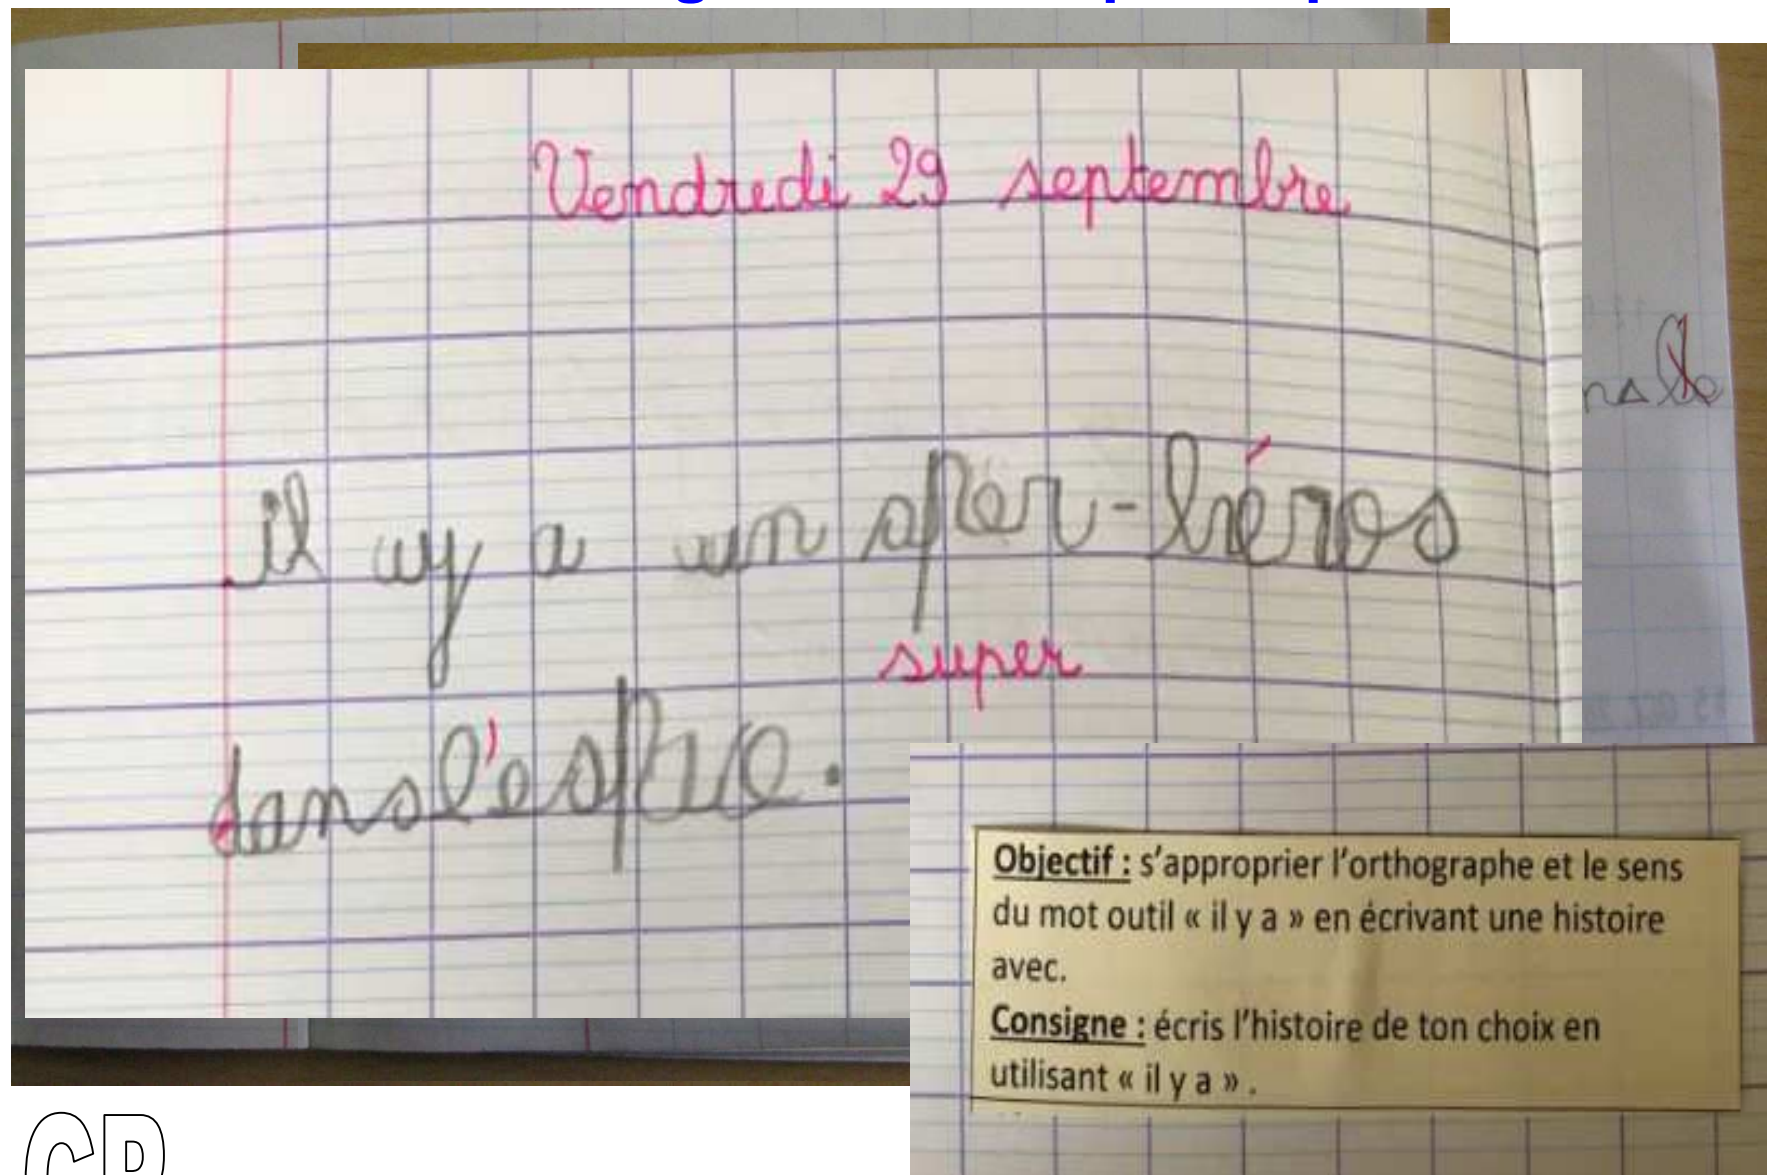 Vendredi 29 septembre
il y a un sper-héros
super
dans l'espace.
Objectif : s'approprier l'orthographe et le sens
du mot outil « il y a » en écrivant une histoire
avec.
Consigne : écris l'histoire de ton choix en
utilisant « il y a » .
CP